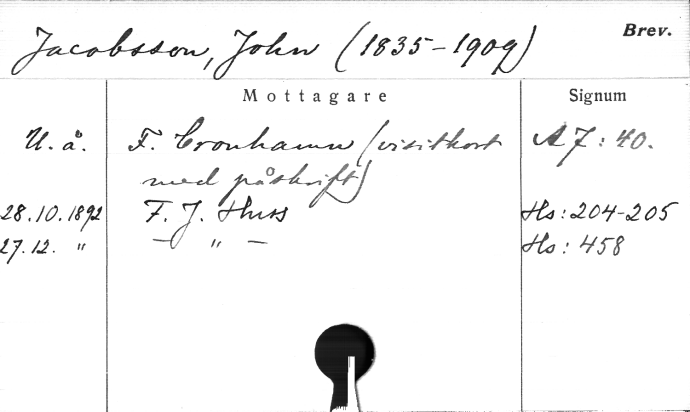 Jacobsson, John (1835-1909) Brev.
Mottagare Signum
U. å. F. Cronhamn (visitkort A7:40.
med påskrift)
28.10.1892 F. J. Huss Hs: 204-205
27.12. " — " — Hs: 458